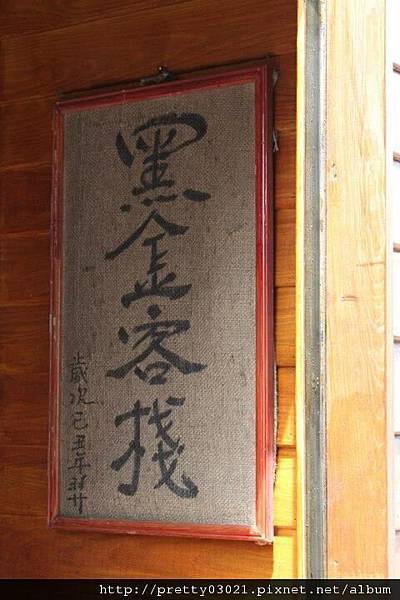 黑金客栈
歲次己丑年
http://pretty03021.pixnet.net/album